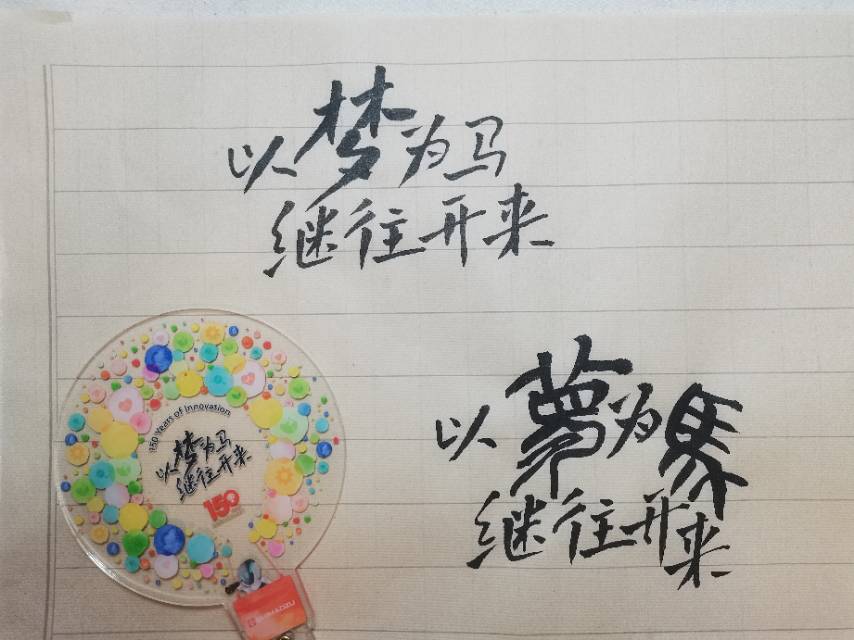 以梦为马
继往开来
150 Years of Innovation
以梦为马
继往开来
150
SHIMADZU
以夢为馬
继往开来